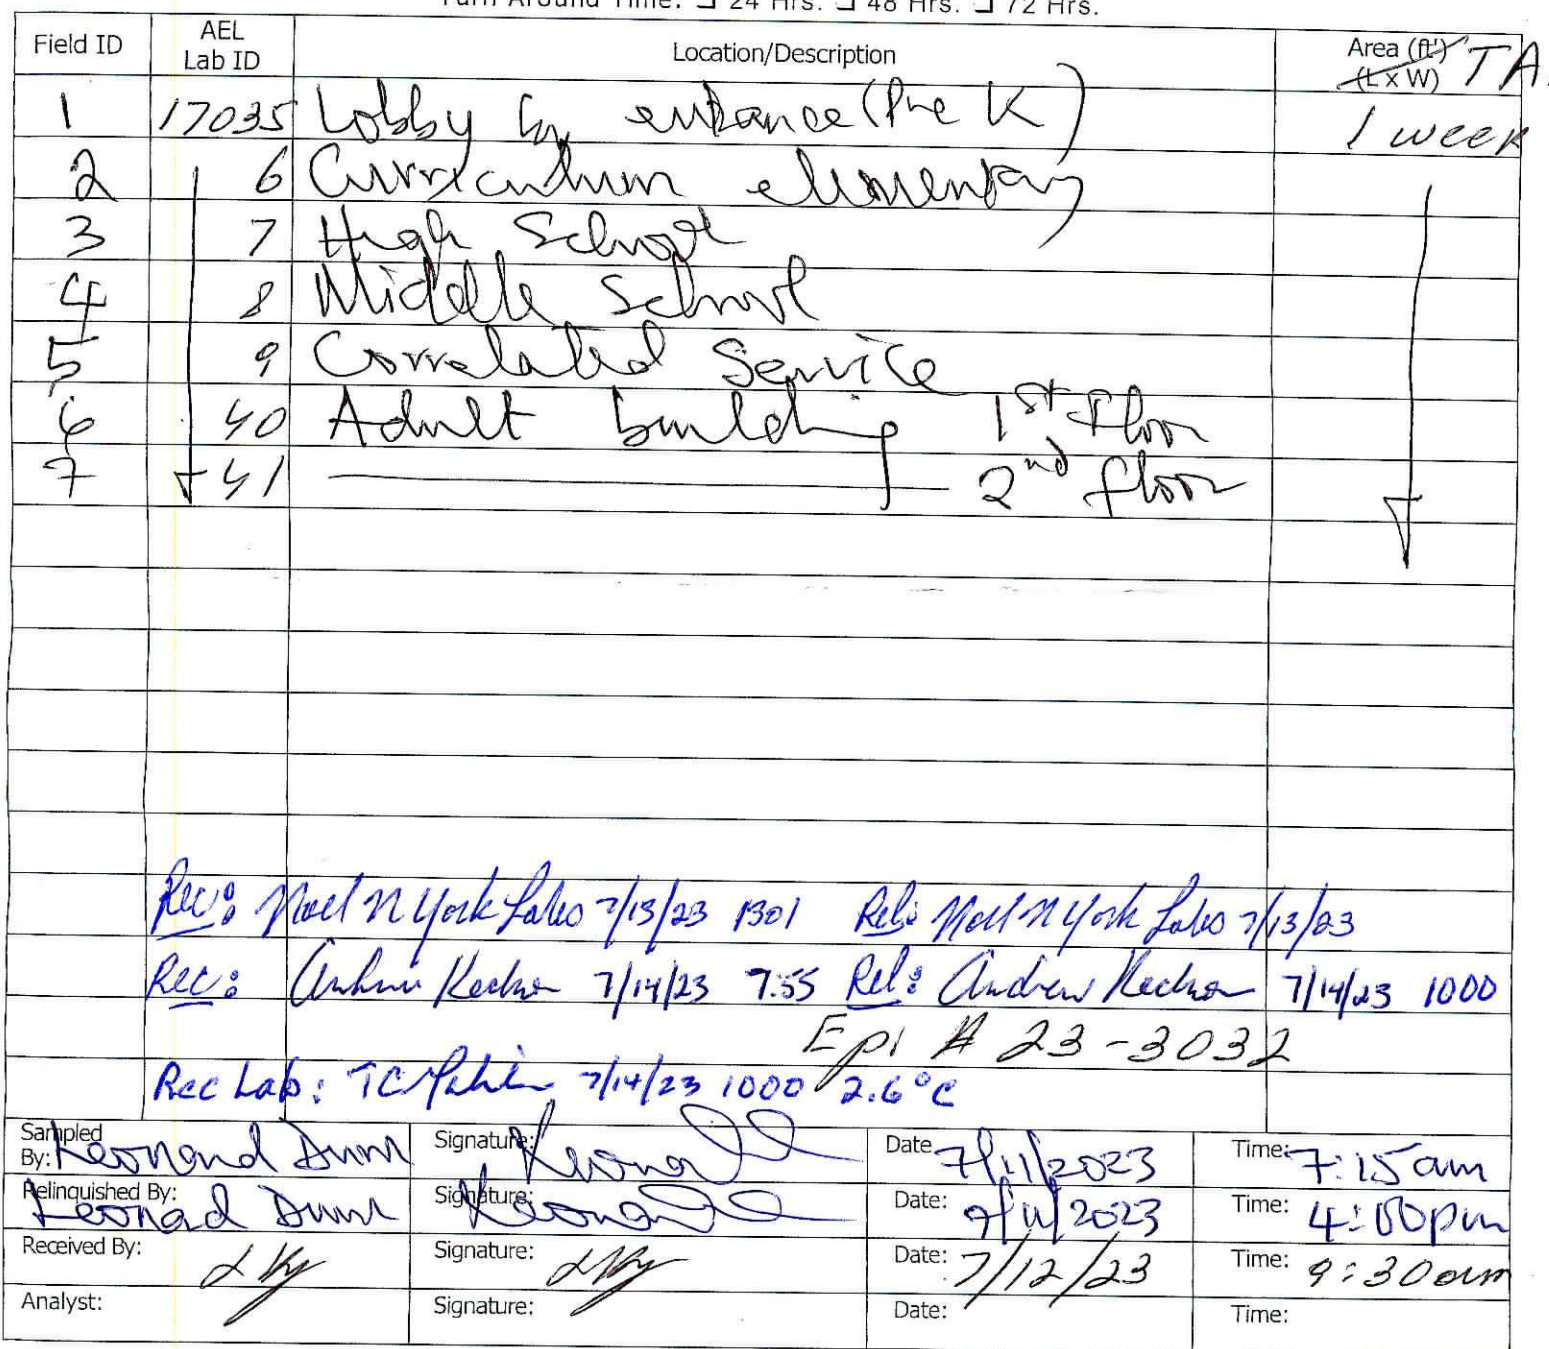 Turn Around Time: ❏ 24 Hrs. ❏ 48 Hrs. ❏ 72 Hrs.
Field ID AEL Lab ID Location/Description Area (ft²) (L x W) TA
1 17035 Lobby by entrance (Pre K) 1 week
2 6 Curriculum elementary
3 7 High School
4 8 Middle School
5 9 Correlated Service
6 40 Adult building 1st Floor
7 41 2nd floor
Rec: Noel N York Labs 7/13/23 1301 Rel: Noel N York Labs 7/13/23
Rec: Andrew 7/14/23 7:55 Rel: Andrew 7/14/23 1000
Epi # 23-3032
Rec Lab: TC 7/14/23 1000 2.6°C
Sampled By: Leonard Dunn Signature: Date 7/11/2023 Time: 7:15am
Relinquished By: Leonad Dunn Signature: Date: 7/11/2023 Time: 4:00pm
Received By: Signature: Date: 7/12/23 Time: 9:30am
Analyst: Signature: Date: Time: